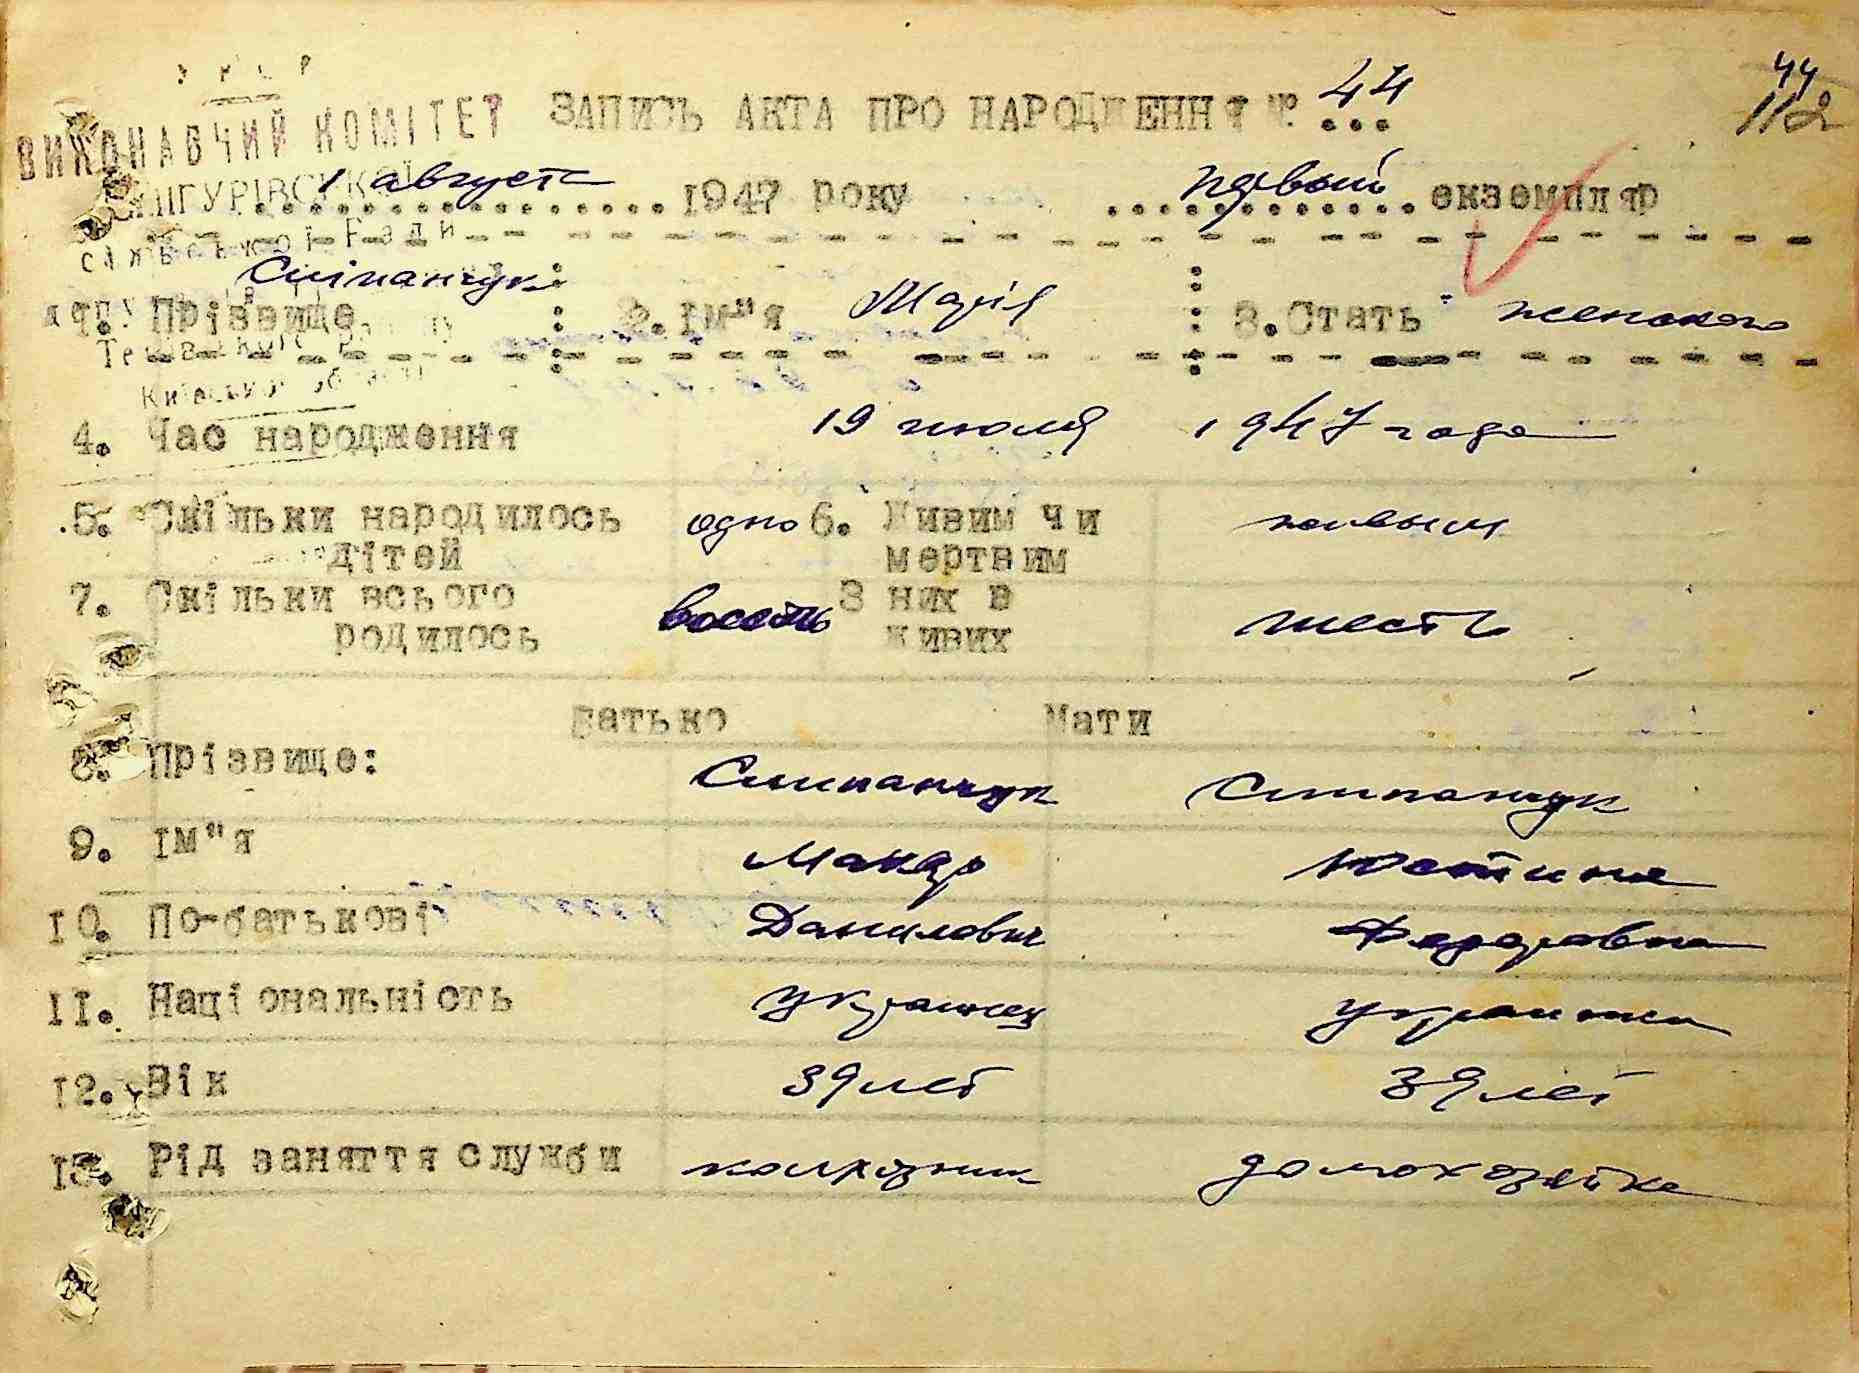 У Р С Р
ВИКОНАВЧИЙ КОМІТЕТ
сільської Ради
Київської області
44
112
ЗАПИСЬ АКТА ПРО НАРОДЖЕННЯ № 44
1 августа 1947 року первый екземпляр
1. Прізвище Сліпанчук 2. Ім"я Марія 3. Стать женского
4. Час народження 19 июля 1947 года
5. Скільки народилось дітей одно 6. Живим чи мертвим живым
7. Скільки всього родилось восемь З них в живих шесть
Батько Мати
8. Прізвище: Слипанчук Слипанчук
9. Ім"я Макар Юстина
10. По-батькові Данилович Федоровна
11. Національність украинец украинка
12. Вік 39 лет 39 лет
13. Рід заняття служби колхозник домохозяйка